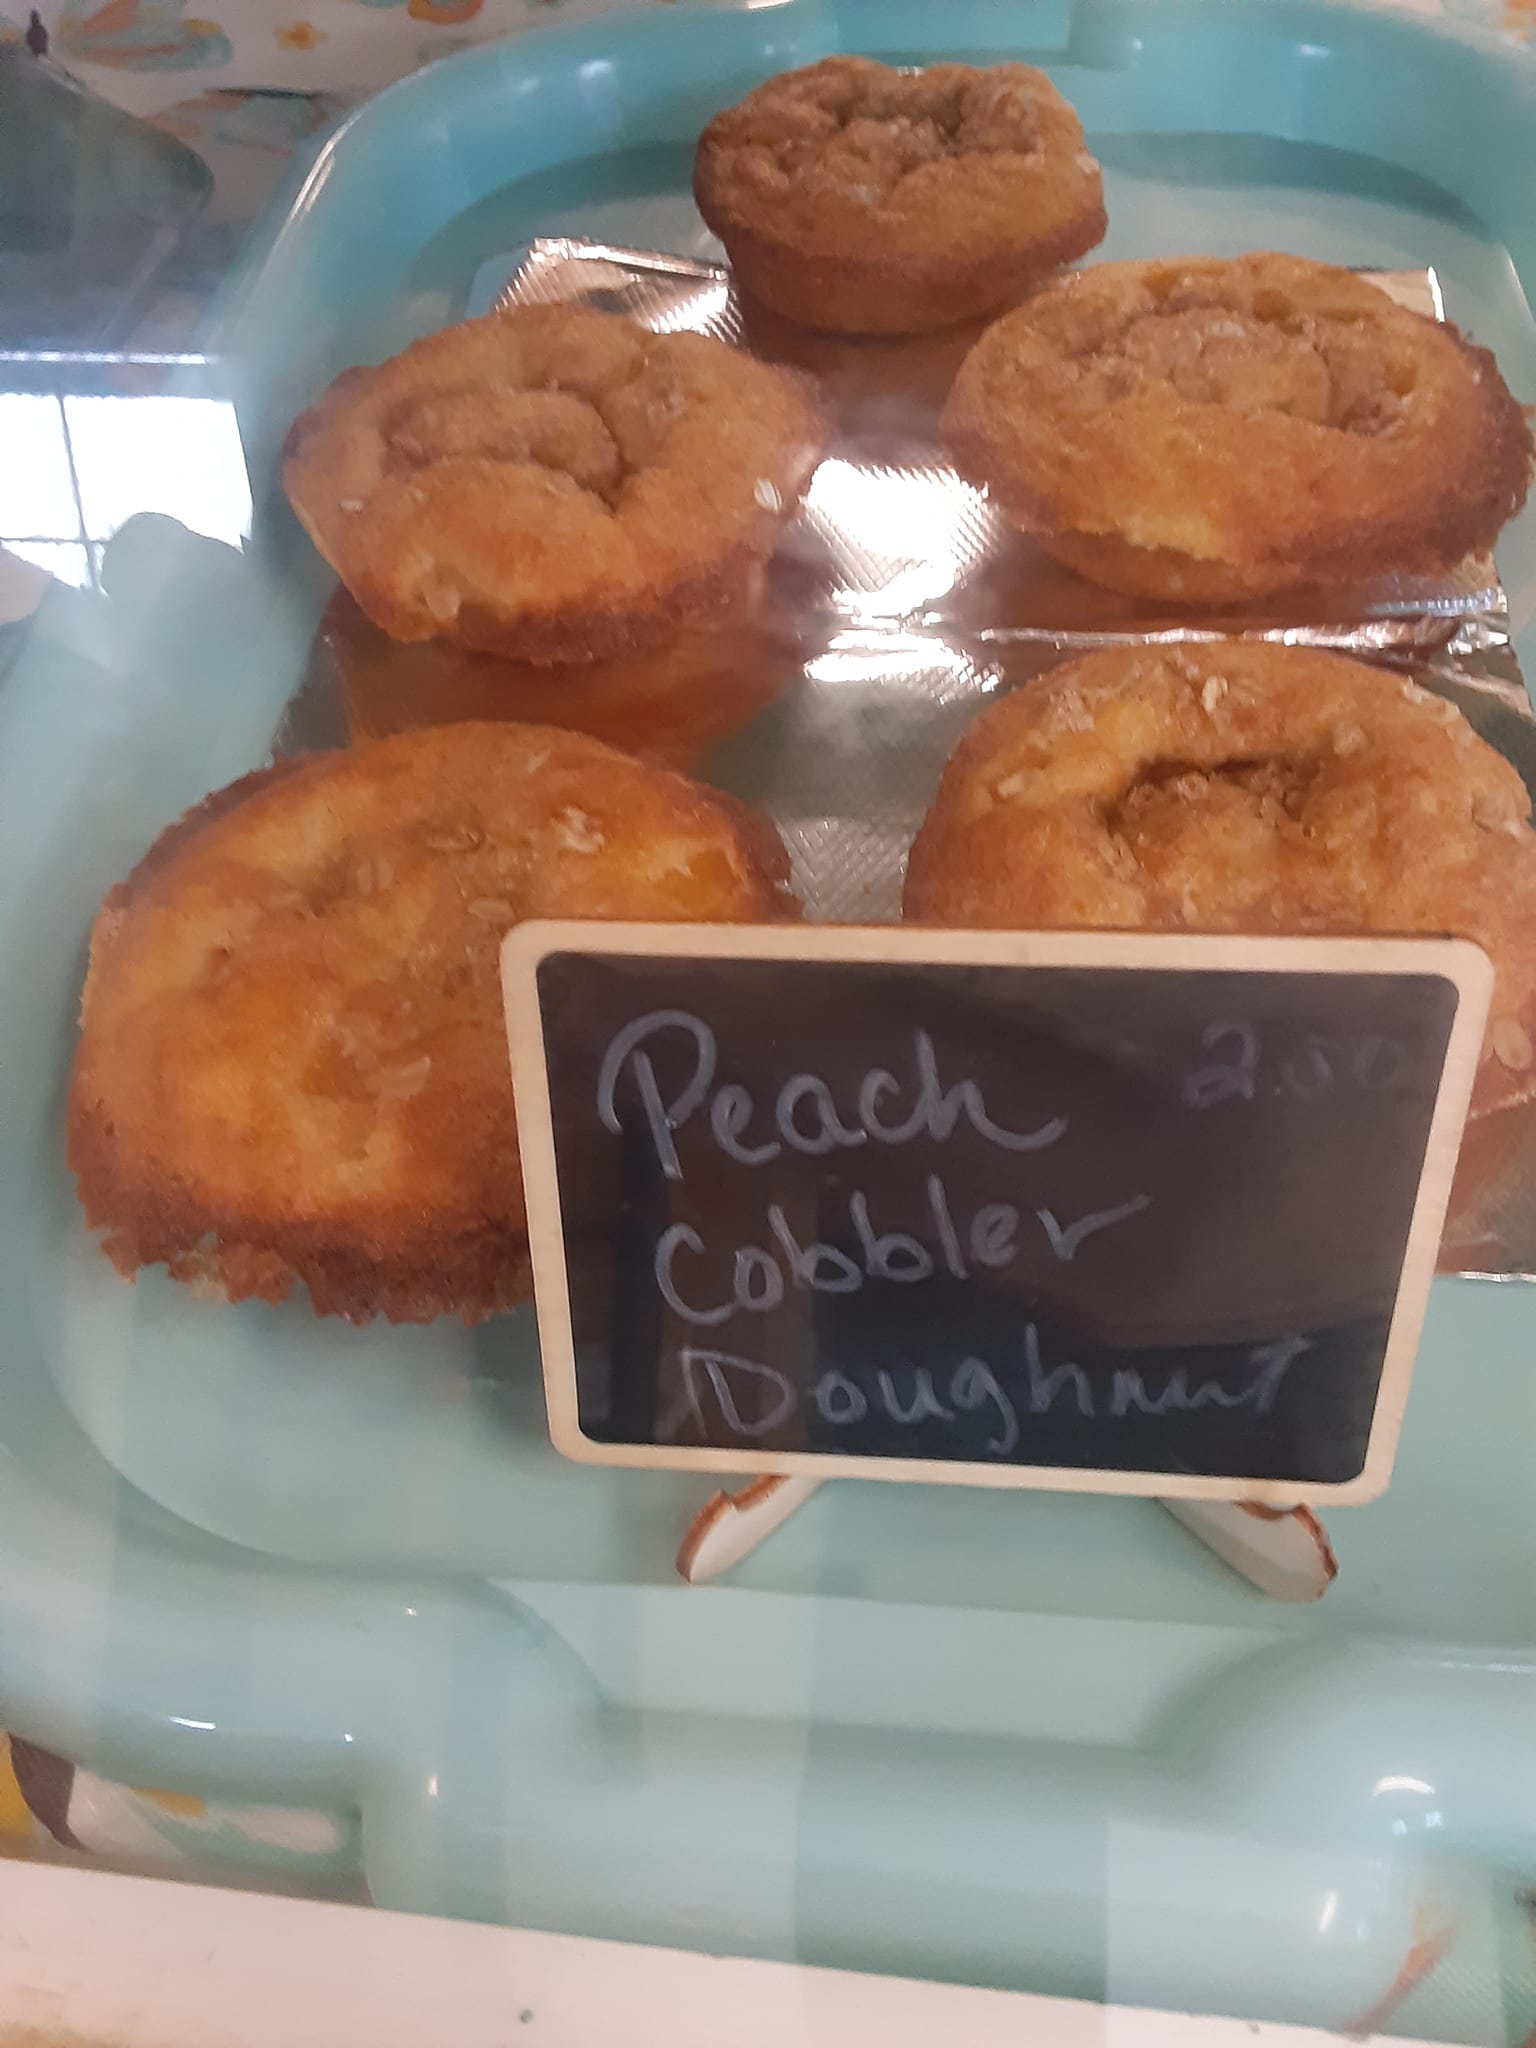 Peach 2.50
Cobbler
Doughnut